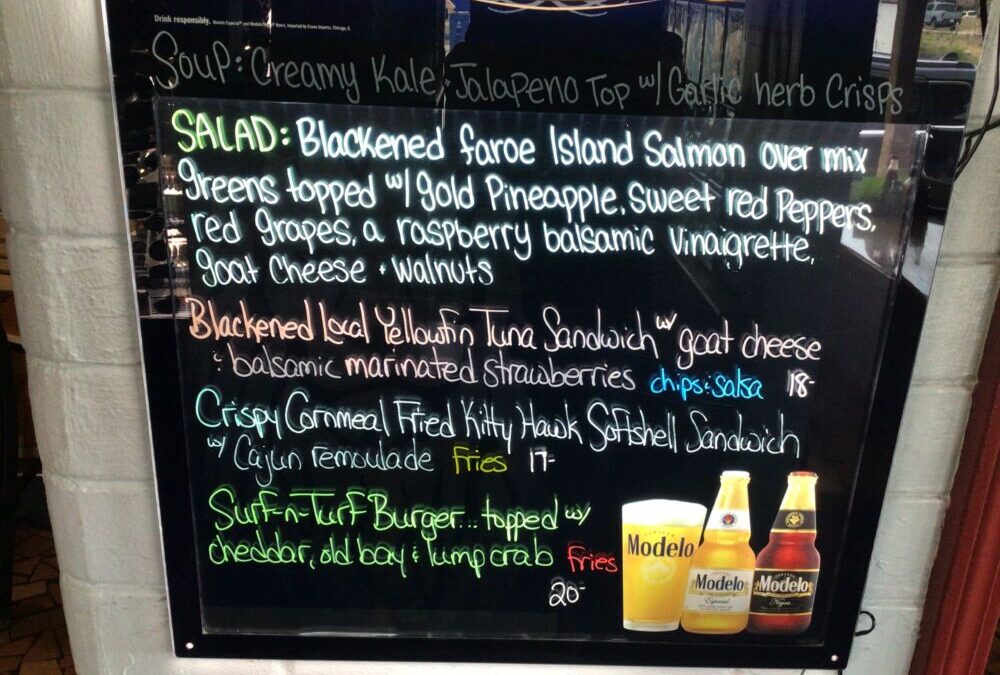 Drink responsibly. Modelo Especial® and Modelo Negra® Beers. Imported by Crown Imports, Chicago, IL
Soup: Creamy Kale + Jalapeno Top w/ Garlic herb Crisps
SALAD: Blackened faroe Island Salmon over mix
greens topped w/ gold Pineapple, sweet red Peppers,
red grapes, a raspberry balsamic Vinaigrette,
goat Cheese + walnuts
Blackened Local Yellowfin Tuna Sandwich w/ goat cheese
& balsamic marinated strawberries chips & salsa 18-
Crispy Cornmeal Fried Kitty Hawk Softshell Sandwich
w/ Cajun remoulade Fries 17-
Surf-n-Turf Burger... topped w/
cheddar, old bay & lump crab Fries
20-
Modelo
Modelo
Especial
Modelo
Negra